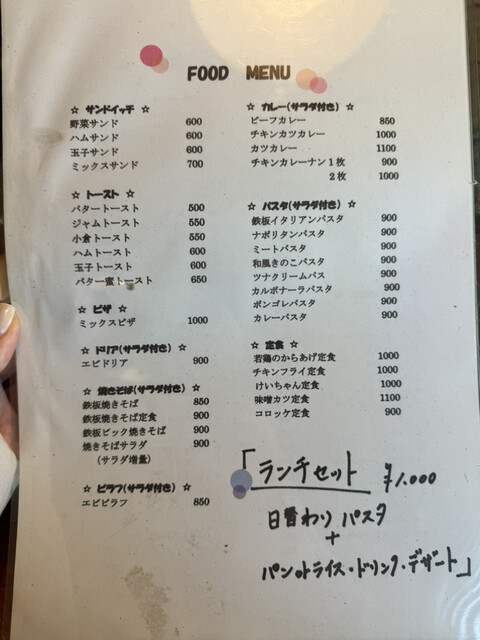 FOOD MENU
☆ サンドイッチ ☆
野菜サンド 600
ハムサンド 600
玉子サンド 600
ミックスサンド 700
☆ トースト ☆
バタートースト 500
ジャムトースト 550
小倉トースト 550
ハムトースト 600
玉子トースト 600
バター蜜トースト 650
☆ ピザ ☆
ミックスピザ 1000
☆ ドリア(サラダ付き) ☆
エビドリア 900
☆ 焼きそば(サラダ付き) ☆
鉄板焼きそば 850
鉄板焼きそば定食 900
鉄板ビック焼きそば 900
焼きそばサラダ 900
(サラダ増量)
☆ ピラフ(サラダ付き) ☆
エビピラフ 850
☆ カレー(サラダ付き) ☆
ビーフカレー 850
チキンカツカレー 1000
カツカレー 1100
チキンカレーナン1枚 900
2枚 1000
☆ パスタ(サラダ付き) ☆
鉄板イタリアンパスタ 900
ナポリタンパスタ 900
ミートパスタ 900
和風きのこパスタ 900
ツナクリームパス 900
カルボナーラパスタ 900
ボンゴレパスタ 900
カレーパスタ 900
☆ 定食 ☆
若鶏のからあげ定食 1000
チキンフライ定食 1000
けいちゃん定食 1000
味噌カツ定食 1100
コロッケ定食 900
「ランチセット ¥1.000
日替わりパスタ
+
パンorライス・ドリンク・デザート」